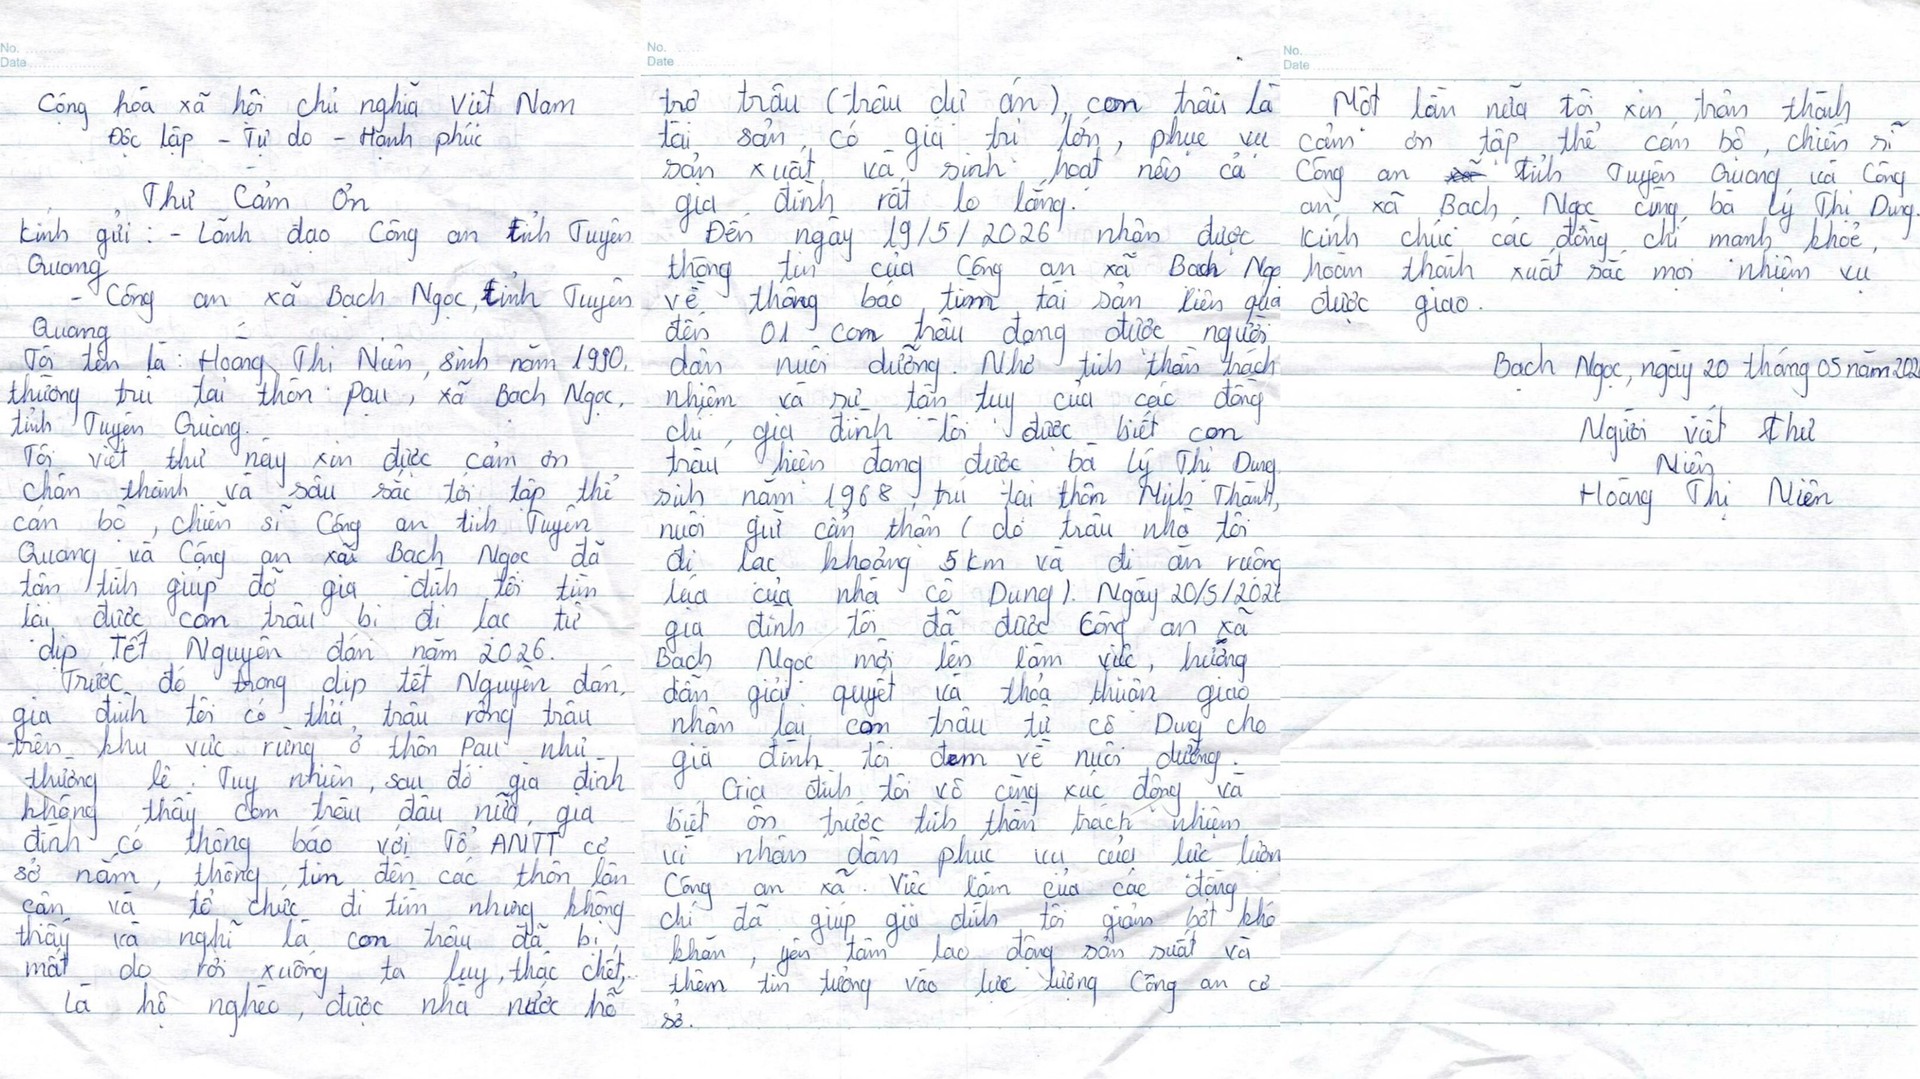 No.
Date
Cộng hòa xã hội chủ nghĩa Việt Nam
Độc lập - Tự do - Hạnh phúc
Thư Cảm Ơn
Kính gửi: - Lãnh đạo Công an tỉnh Tuyên
Quang
- Công an xã Bạch Ngọc, tỉnh Tuyên
Quang
Tôi tên là: Hoàng Thị Niên, sinh năm 1990,
thường trú tại thôn Pau, xã Bạch Ngọc,
tỉnh Tuyên Quang.
Tôi viết thư này xin được cảm ơn
chân thành và sâu sắc tới tập thể
cán bộ, chiến sĩ Công an tỉnh Tuyên
Quang và Công an xã Bạch Ngọc đã
tận tình giúp đỡ gia đình tôi tìm
lại được con trâu bị đi lạc từ
dịp Tết Nguyên đán năm 2026.
Trước đó trong dịp tết Nguyên đán,
gia đình tôi có thả trâu rông trâu
trên khu vực rừng ở thôn Pau như
thường lệ. Tuy nhiên, sau đó gia đình
không thấy con trâu đâu nữa, gia
đình có thông báo với Tổ ANTT cơ
sở nắm, thông tin đến các thôn lân
cận và tổ chức đi tìm nhưng không
thấy và nghĩ là con trâu đã bị
mất do rơi xuống ta luy, thác chết,
Là hộ nghèo, được nhà nước hỗ
No.
Date
trợ trâu (trâu dự án), con trâu là
tài sản có giá trị lớn, phục vụ
sản xuất và sinh hoạt nên cả
gia đình rất lo lắng.
Đến ngày 19/5/2026 nhận được
thông tin của Công an xã Bạch Ngọ
về thông báo tìm tài sản liên qua
đến 01 con trâu đang được người
dân nuôi dưỡng. Nhờ tinh thần trách
nhiệm và sự tận tụy của các đồng
chí, gia đình tôi được biết con
trâu hiện đang được bà Lý Thị Dung
sinh năm 1968, trú tại thôn Minh Thành,
nuôi giữ cẩn thận (do trâu nhà tôi
đi lạc khoảng 5 km và đi ăn ruộng
lúa của nhà cô Dung). Ngày 20/5/2026
gia đình tôi đã được Công an xã
Bạch Ngọc mời lên làm việc, hướng
dẫn giải quyết và thỏa thuận giao
nhận lại con trâu từ cô Dung cho
gia đình tôi đem về nuôi dưỡng.
Gia đình tôi vô cùng xúc động và
biết ơn trước tinh thần trách nhiệm
vì nhân dân phục vụ của lực lượn
Công an xã. Việc làm của các đồng
chí đã giúp gia đình tôi giảm bớt khó
khăn, yên tâm lao động sản suất và
thêm tin tưởng vào lực lượng Công an cơ
sở.
No.
Date
Một lần nữa tôi xin trân thành
cảm ơn tập thể cán bộ, chiến sĩ
Công an tỉnh Tuyên Quang và Công
an xã Bạch Ngọc cùng bà Lý Thị Dung.
Kính chúc các đồng chí mạnh khỏe,
hoàn thành xuất sắc mọi nhiệm vụ
được giao.
Bạch Ngọc, ngày 20 tháng 05 năm 202
Người viết thư
Niên
Hoàng Thị Niên